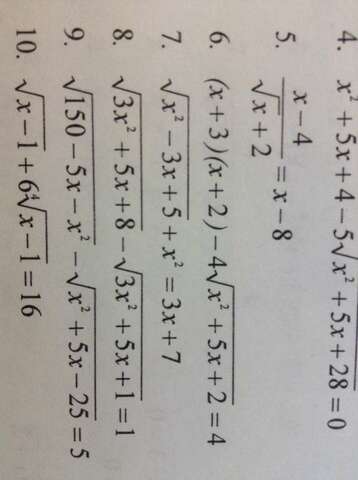 4. x² + 5x + 4 − 5√(x² + 5x + 28) = 0
5. (x − 4)/(√x + 2) = x − 8
6. (x + 3)(x + 2) − 4√(x² + 5x + 2) = 4
7. √(x² − 3x + 5) + x² = 3x + 7
8. √(3x² + 5x + 8) − √(3x² + 5x + 1) = 1
9. √(150 − 5x − x²) − √(x² + 5x − 25) = 5
10. √(x − 1) + 6∜(x − 1) = 16